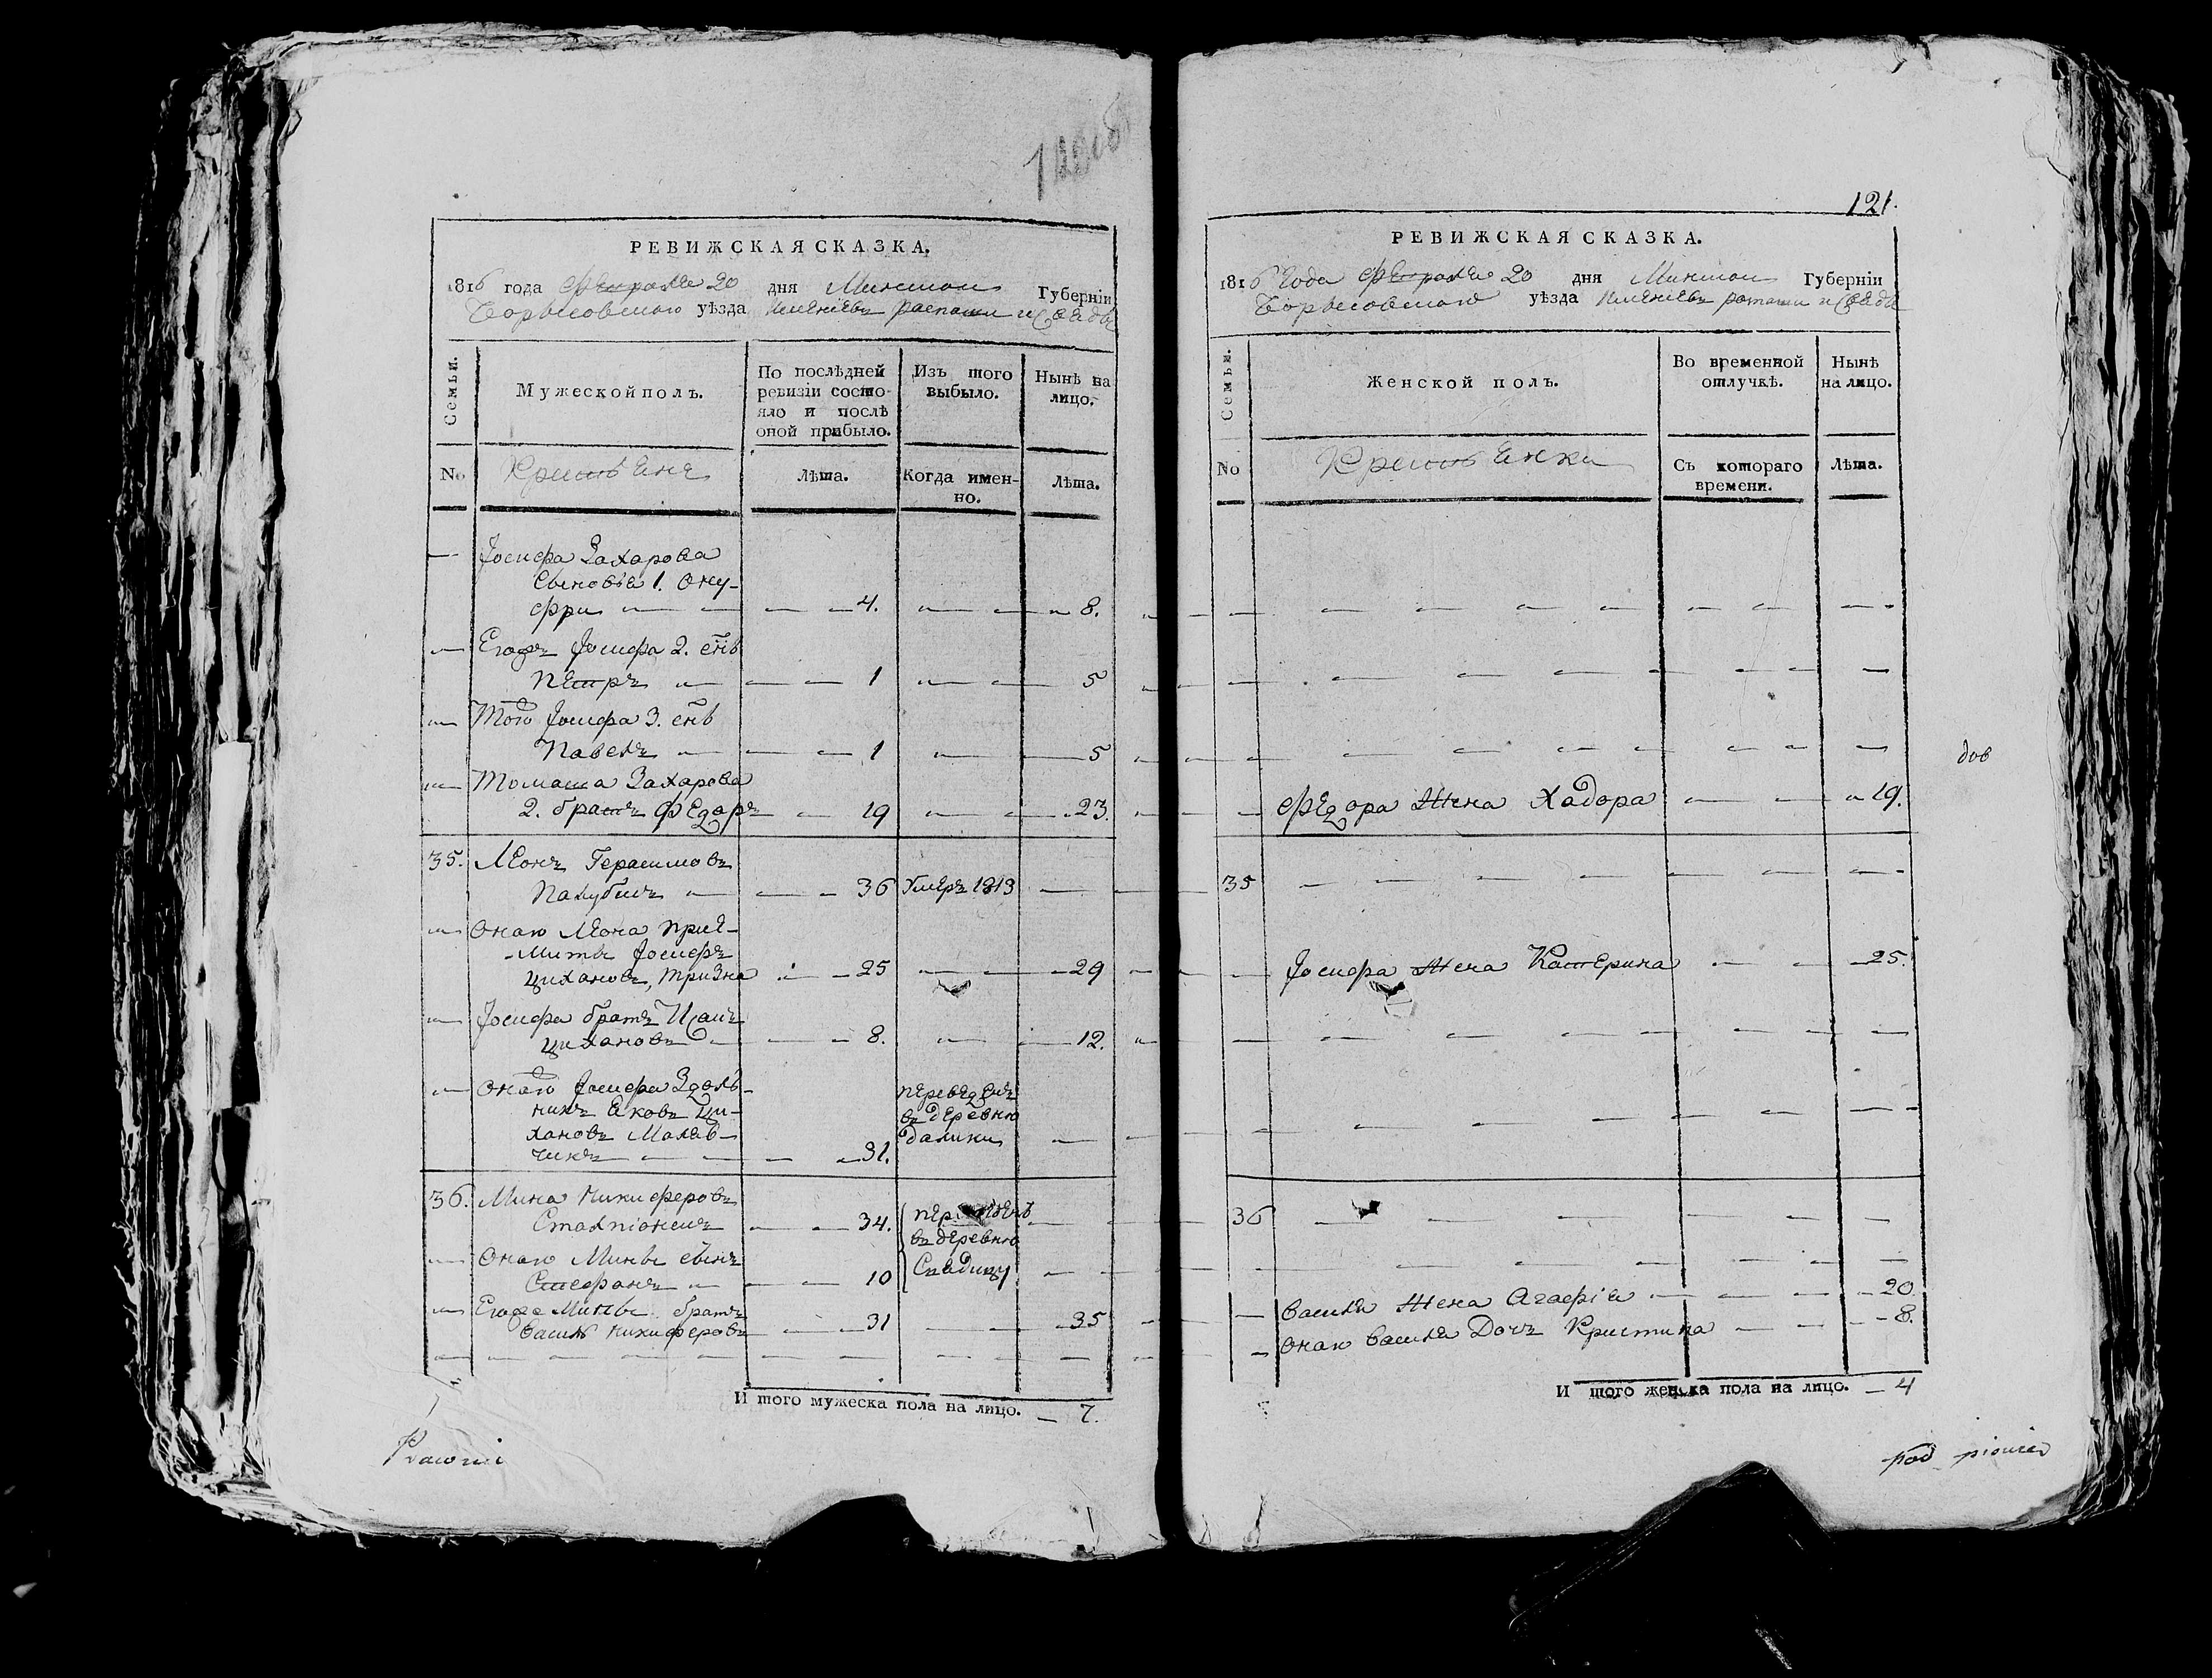 121.
РЕВИЖСКАЯ СКАЗКА.
1816 года Февраля 20 дня Минской Губерніи
Борысовского уѣзда
Семьи.
Мужеской полъ.
По послѣдней ревизіи состояло и послѣ оной прибыло.
Изъ того выбыло.
Нынѣ на лицо.
No
Крестьяне
Лѣта.
Когда именно.
Лѣта.
— Іосифа Захарова
сыновья 1. Ону-
фри — 4. — 8.
— Егожъ Іосифа 2. снъ
Петръ — 1 — 5
— Того Іосифа 3. снъ
Павелъ — 1 — 5
— Томаша Захарова
2. братъ Федоръ — 19 — 23.
35. Леонъ Герасимовъ
— 36 Умеръ 1813 —
— Оного Леона прие-
митъ Іосифъ
Цихановъ, Тризна — 25 — 29
— Іосифа братъ
Цихановъ — 8. — 12.
— Оного Іосифа Здоль-
никъ Яковъ Ци-
хановъ Маляв-
чикъ — 31.
переведенъ
въ деревню
Далики —
36. Мина Никифоровъ
— 34.
въ деревню
— Оного Мины сынъ
Стефанъ — 10 —
— Егоже Мины братъ
Василь Никифоровъ — 31 — 35
И того мужеска пола на лицо. — 7.
РЕВИЖСКАЯ СКАЗКА.
1816 года Февраля 20 дня Минской Губерніи
Борысовского уѣзда
Семьи.
Женской полъ.
Во временной отлучкѣ.
Нынѣ на лицо.
No
Крестьянки
Съ котораго времени.
Лѣта.
Федора жена Хадора — 19.
35
Іосифа жена Катерина — 25.
36
Василя жена Агафія — 20.
Оного Василя дочъ Кристина — 8.
И того женска пола на лицо. — 4